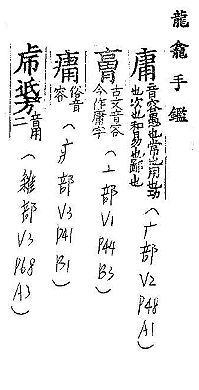 龍龕手鑑
庸 音容愚也常也用也功也次也和易也爵也 (广部 V2 P48 A1)
𠅬 古文音容今作庸字 (亠部 V1 P44 B3)
㾄 俗音容 (疒部 V3 P41 B1)
音庸二 (雜部 V3 P68 A3)